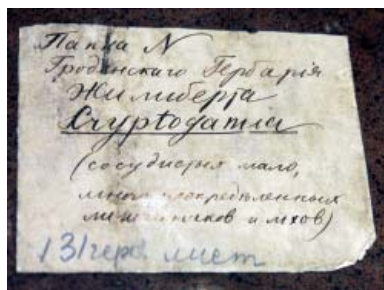 Папка N
Гродненскаго Гербарія
Жилиберта
Cryptogamia
(сосудистыя мало,
много неопредѣленныхъ
лишайников и мхов)
131 герб. лист